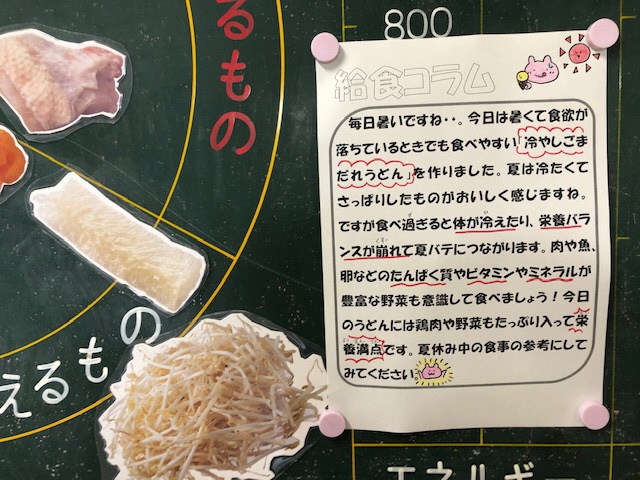 800
るもの
えるもの
エネルギー
給食コラム
毎日暑いですね・・。今日は暑くて食欲が
落ちているときでも食べやすい「冷やしごま
だれうどん」を作りました。夏は冷たくて
さっぱりしたものがおいしく感じますね。
ですが食べ過ぎると体が冷えたり、栄養バラ
ンスが崩れて夏バテにつながります。肉や魚、
卵などのたんぱく質やビタミンやミネラルが
豊富な野菜も意識して食べましょう！今日
のうどんには鶏肉や野菜もたっぷり入って栄
養満点です。夏休み中の食事の参考にして
みてください